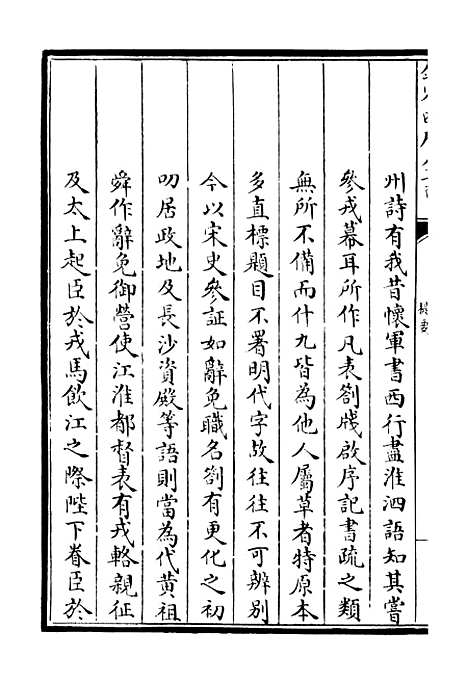 州詩有我昔懷軍書西行盡淮泗語知其嘗
參戎幕耳所作凡表劄牋啟序記書疏之類
無所不備而什九皆為他人屬草者特原本
多直標題目不署明代字故往往不可辨別
今以宋史參証如辭免職名劄有更化之初
叨居政地及長沙資殿等語則當為代黄祖
舜作辭免御營使江淮都督表有戎輅親征
及太上起臣於戎馬飲江之際陛下眷臣於